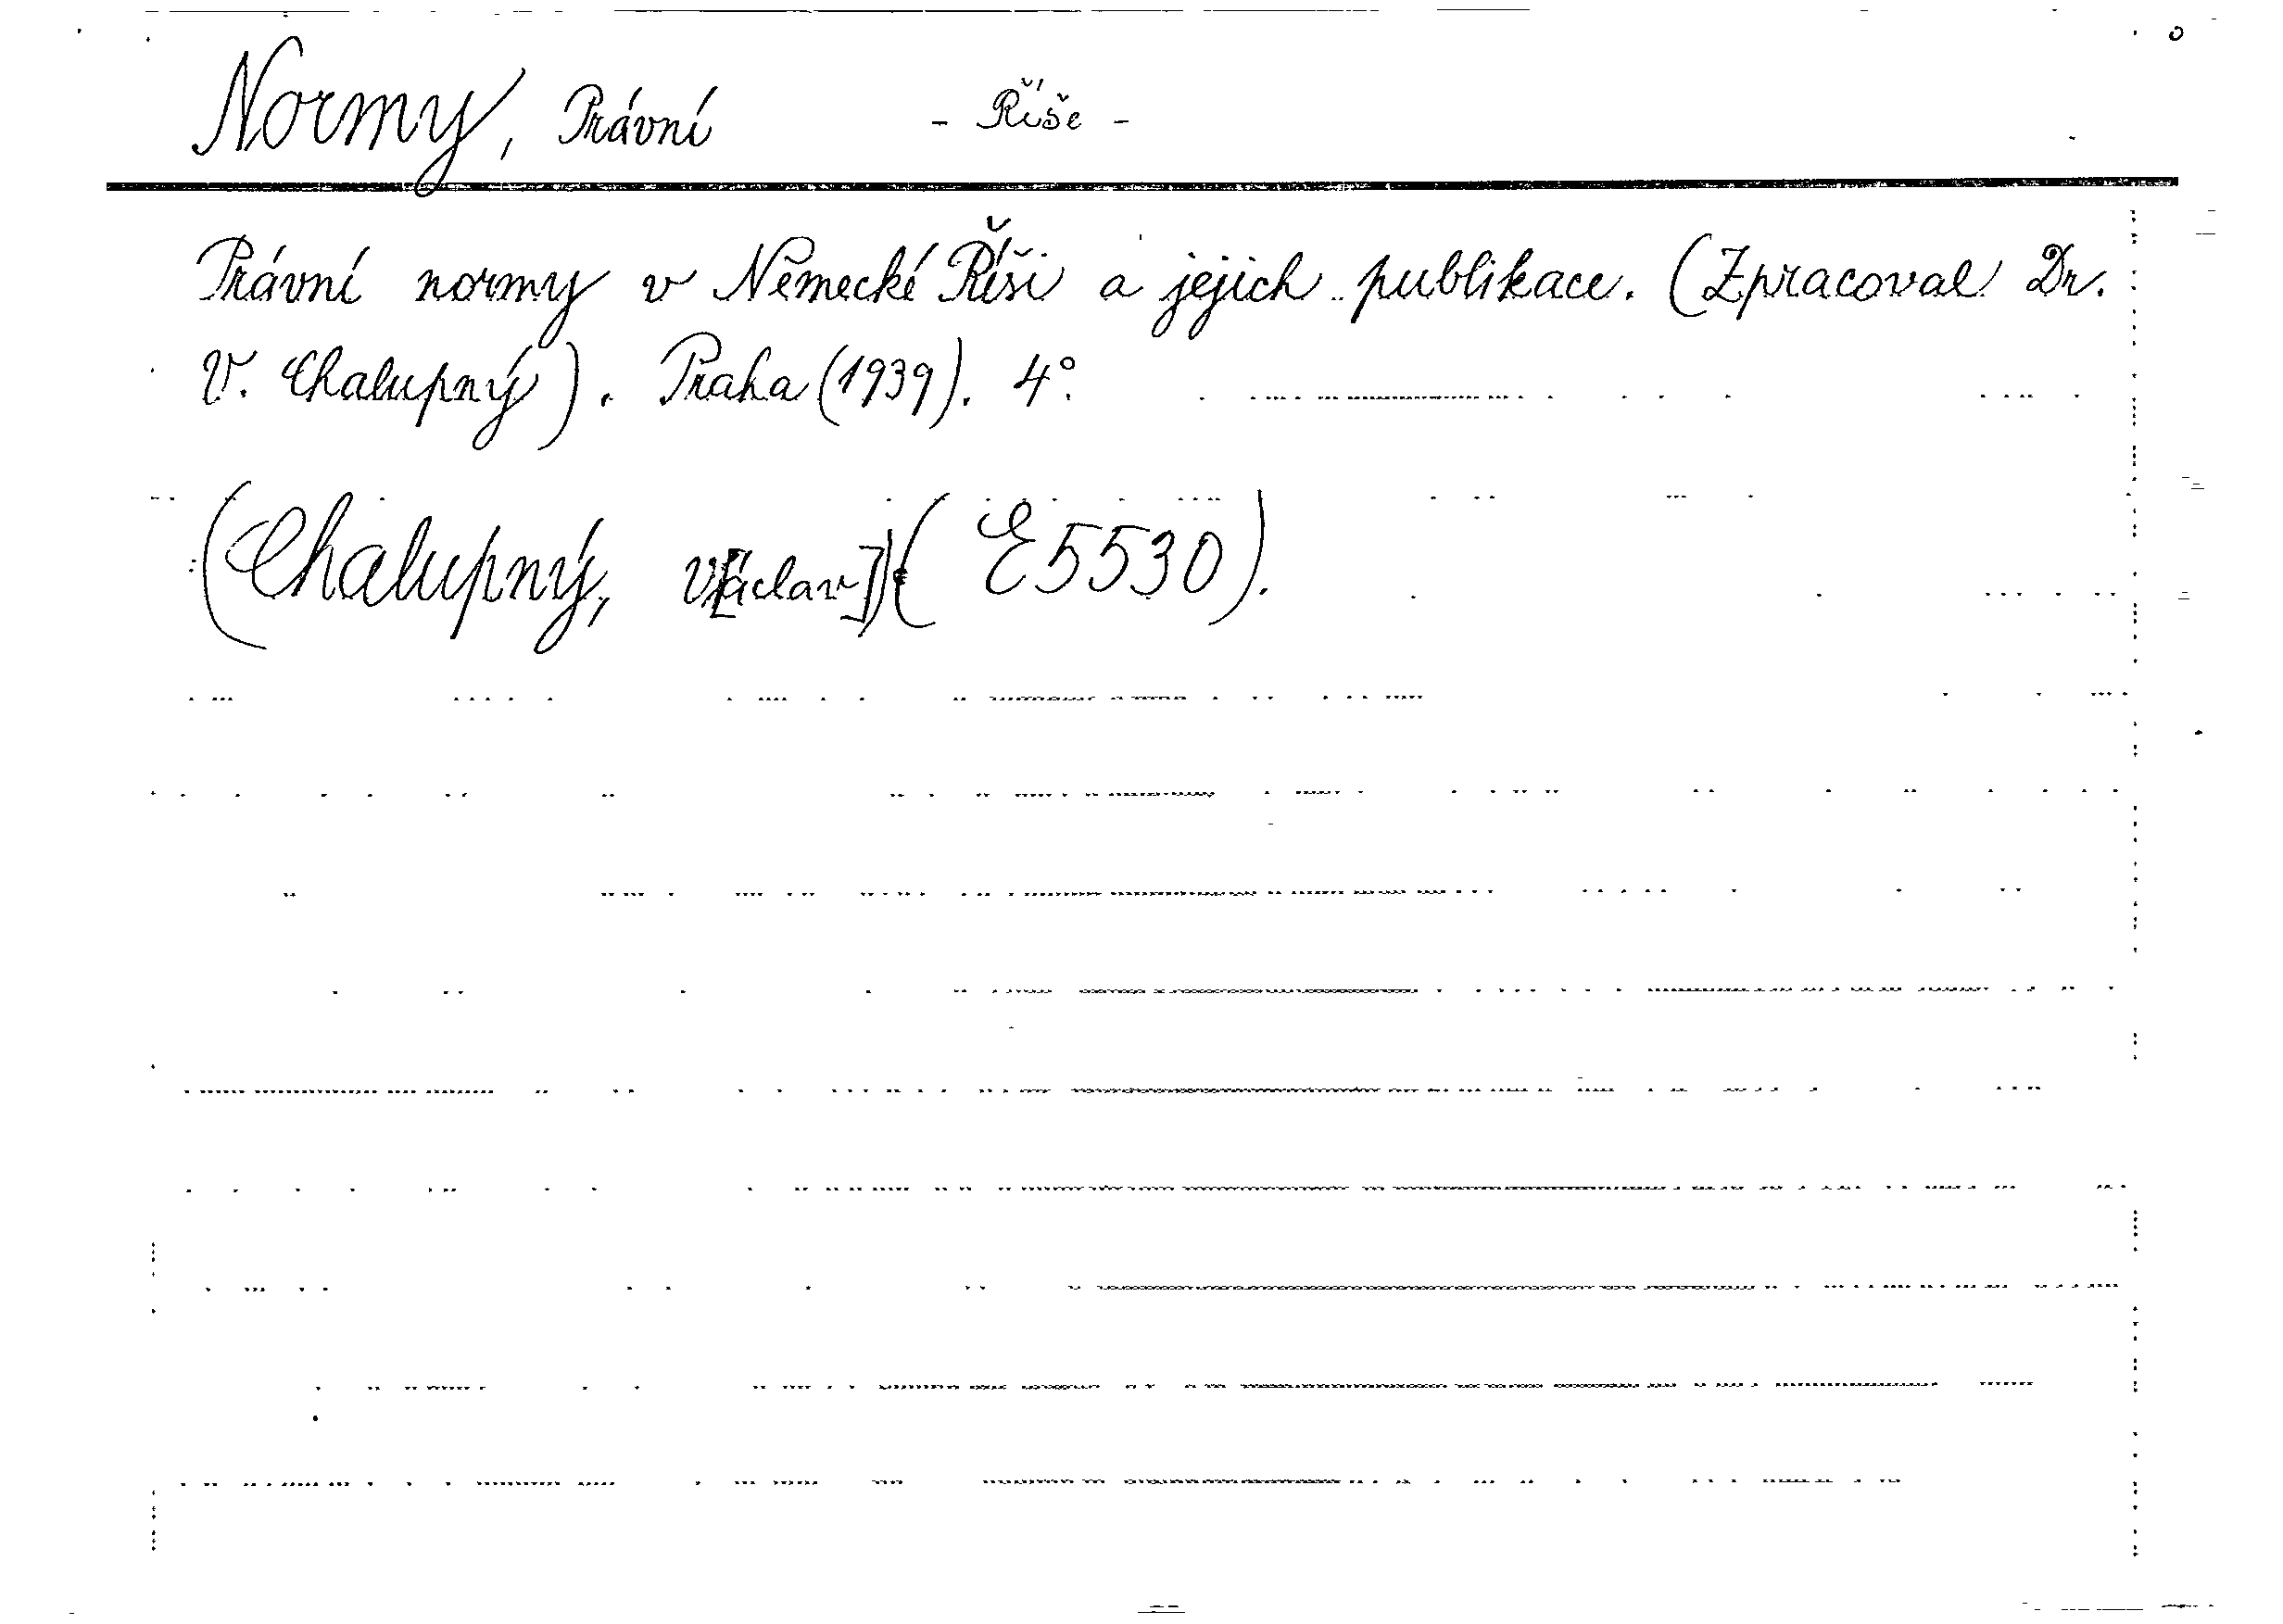 Normy, Právní - Říše -
Právní normy v Německé Říši a jejich publikace. (Zpracoval Dr.
V. Chalupný). Praha (1939). 4°.
(Chalupný, V[áclav]) (E 5530).